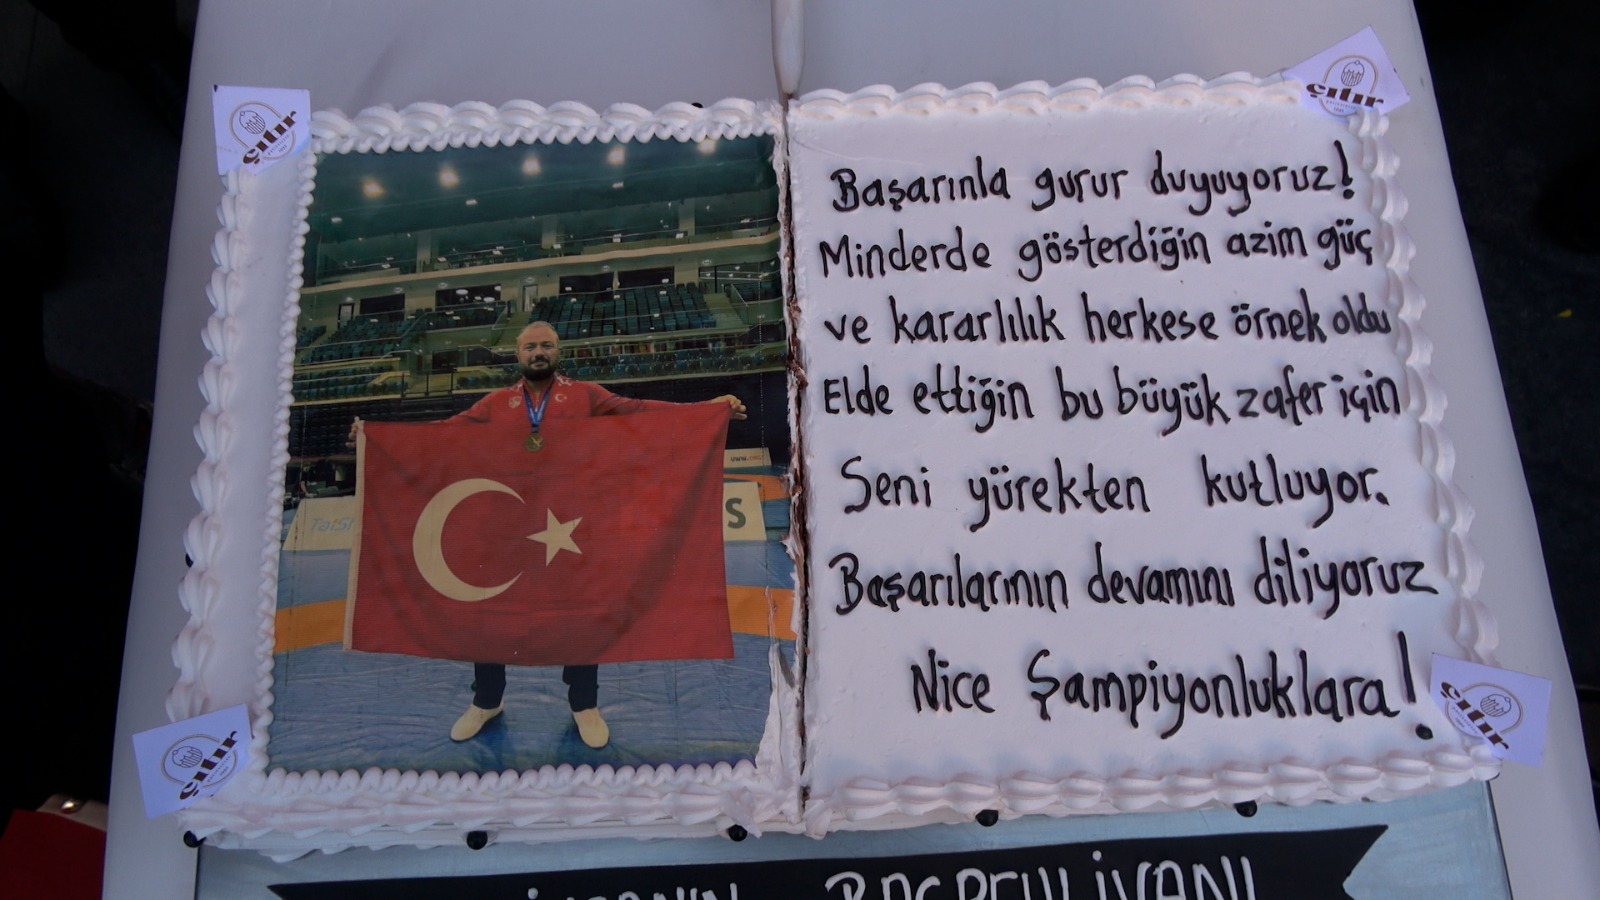 çıtır
çıtır
Başarınla gurur duyuyoruz!
Minderde gösterdiğin azim güç
ve kararlılık herkese örnek oldu
Elde ettiğin bu büyük zafer için
Seni yürekten kutluyor.
Başarılarının devamını diliyoruz
Nice Şampiyonluklara!
çıtır
çıtır
BAŞPEHLİVANI